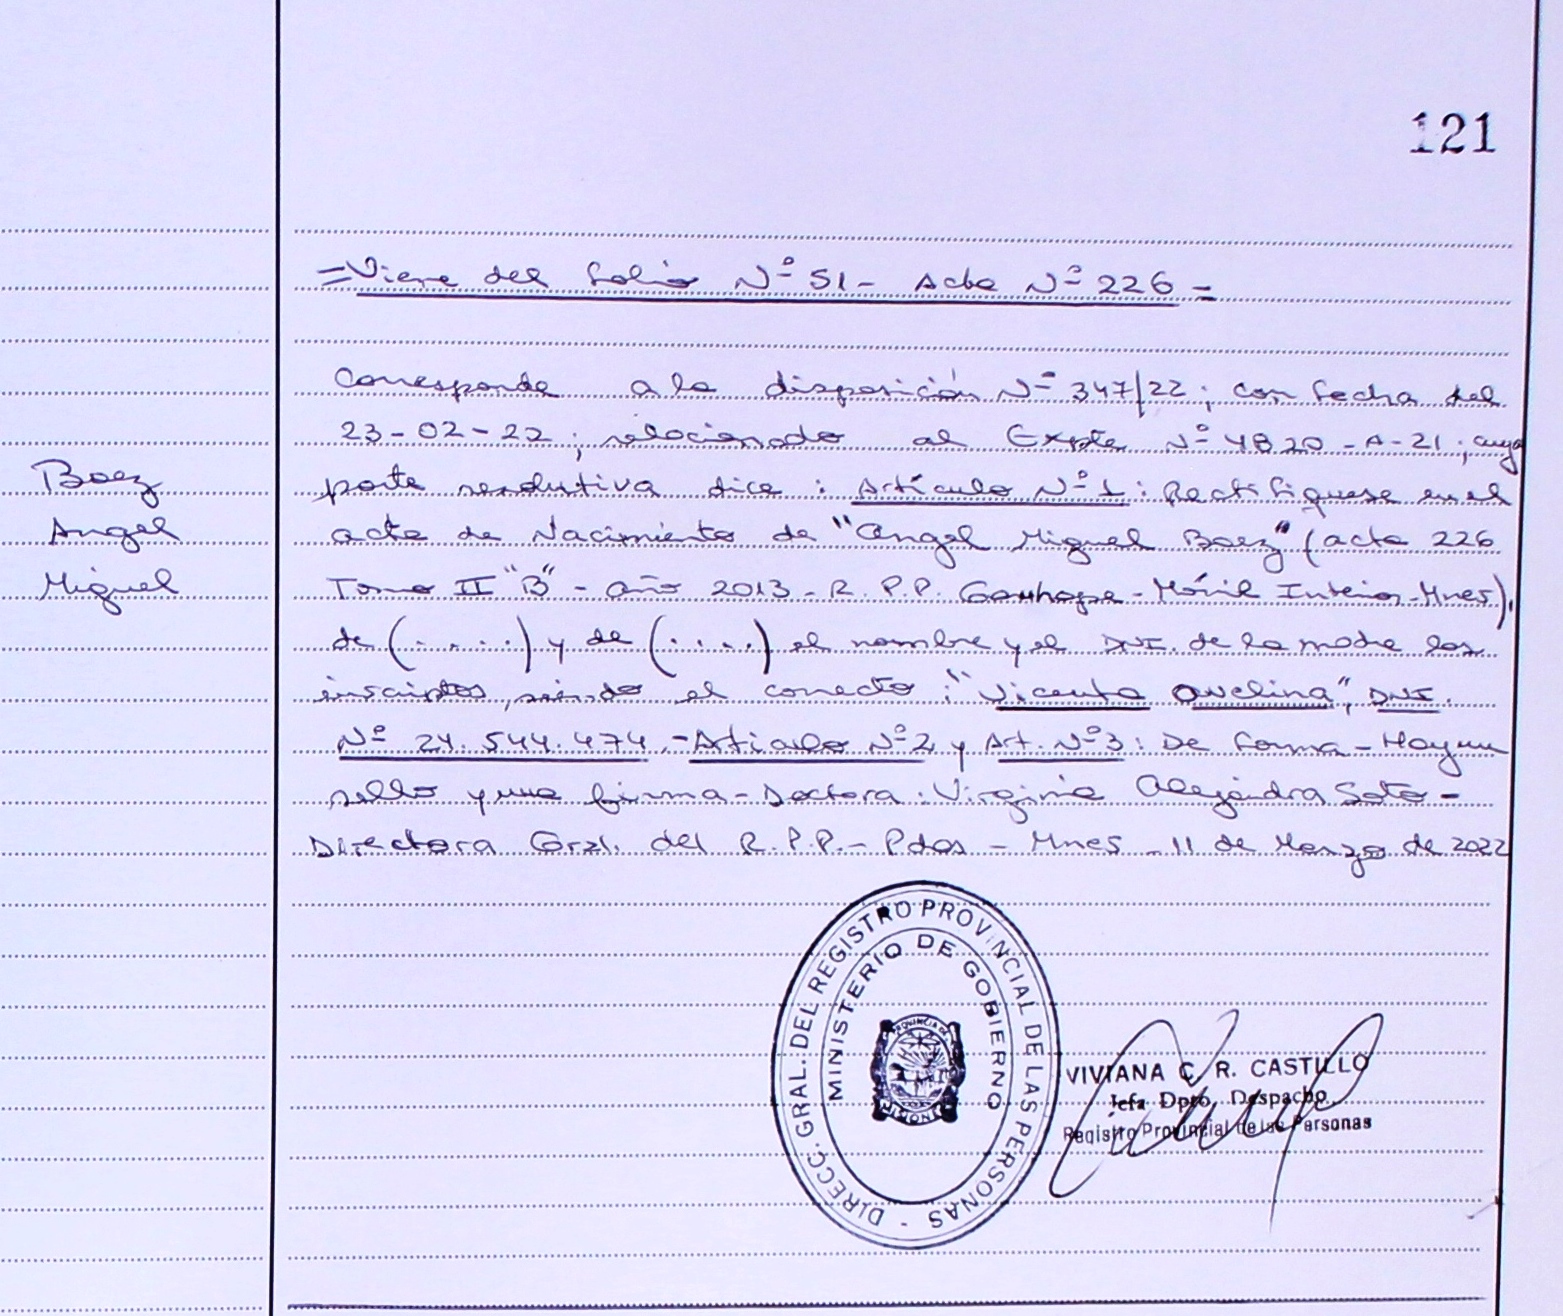 121
=Viene del folio Nº 51 - Acta Nº 226 =
Corresponde a la disposición Nº 347/22; con fecha del
23-02-22; relacionado al Expte Nº 4820-A-21; cuya
Baez
parte resolutiva dice: Artículo Nº 1: Rectifiquese en el
Angel
acta de Nacimiento de "Angel Miguel Baez" (acta 226
Miguel
Tomo II "B" - año 2013 - R.P.P. Móvil Interior - Mnes).
de (.....) y de (.....) el nombre y el DNI. de la madre los
inscriptos, siendo el correcto: "Vicenta Avelina", DNI.
Nº 24.544.474.- Articulo Nº 2 y Art. Nº 3: De forma - Hay un
sello y una firma - Doctora: Virginia Alejandra Soto -
Directora Gral. del R.P.P. - Pdas - Mnes - 11 de Marzo de 2022
DIRECC. GRAL. DEL REGISTRO PROVINCIAL DE LAS PERSONAS -
MINISTERIO DE GOBIERNO
PROVINCIA DE
MISIONES
VIVIANA C. R. CASTILLO
Jefa Dpto. Despacho
Registro Provincial de las Personas